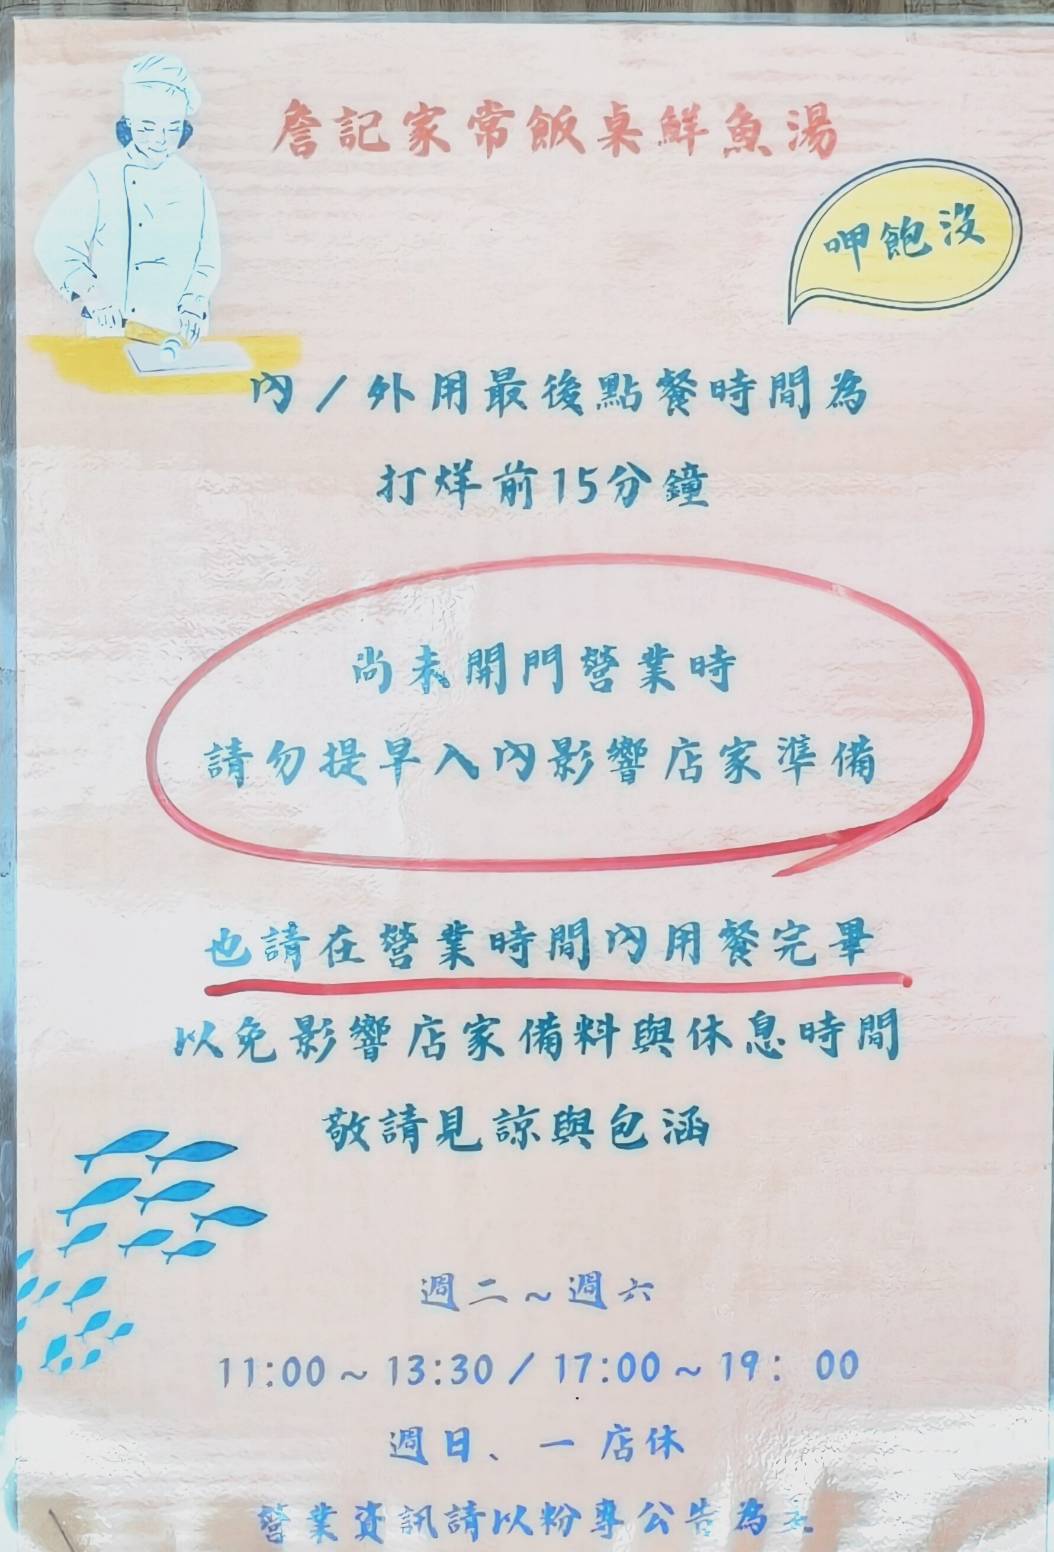 詹記家常飯桌鮮魚湯
呷飽沒
內／外用最後點餐時間為
打烊前15分鐘
尚未開門營業時
請勿提早入內影響店家準備
也請在營業時間內用餐完畢
以免影響店家備料與休息時間
敬請見諒與包涵
週二～週六
11:00～13:30／17:00～19：00
週日、一 店休
營業資訊請以粉專公告為主